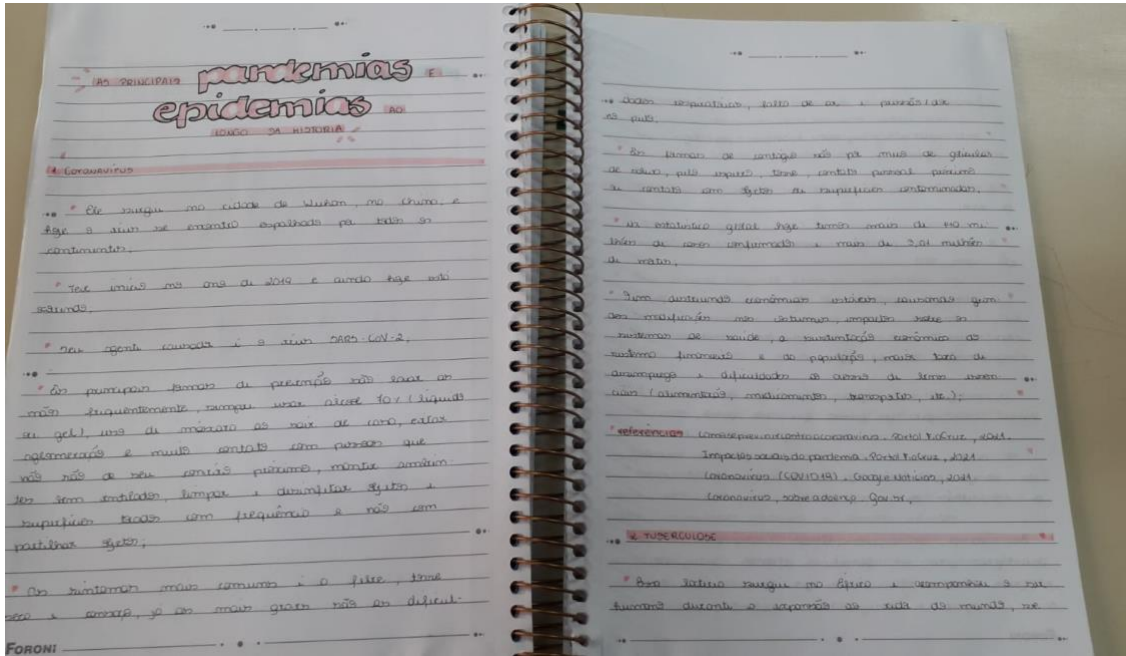 AS PRINCIPAIS pandemias E
epidemias AO
LONGO DA HISTÓRIA
1. CORONAVÍRUS
• Ele surgiu na cidade de Wuhan, na China, e
hoje o vírus se encontra espalhado por todos os
continentes.
• Teve início no ano de 2019 e ainda hoje está
• Seu agente causador é o vírus SARS-CoV-2;
• As principais formas de prevenção são lavar as
mãos frequentemente, sempre usar álcool 70% (líquido
ou gel), uso de máscara ao sair de casa, evitar
aglomeração e muito contato com pessoas que
não são de seu convívio próximo, manter ambien-
tes bem ventilados, limpar e desinfetar objetos e
superfícies tocadas com frequência e não com
partilhar objetos;
• Os sintomas mais comuns é a febre, tosse
seca e cansaço, já os mais graves são as dificul-
FORONI
dades respiratórias, falta de ar e pressão/dor
no peito.
• As formas de contágio são por meio de gotículas
de saliva, pelo espirro, tosse, contato pessoal próximo
ou contato com objetos ou superfícies contaminadas.
• Na estatística global hoje temos mais de 140 mi-
lhões de casos confirmados e mais de 3,01 milhões
de mortes.
• Vem destruindo economias estáveis, causando gran-
des modificações nos costumes, impactos sobre os
sistemas de saúde, a sustentação econômica do
sistema financeiro e da população, maior taxa de
desemprego e dificuldades ao acesso de bens essen-
ciais (alimentação, medicamentos, transportes, etc.);
• referências Como se prevenir contra o coronavírus. Portal FioCruz, 2021.
Impactos sociais da pandemia. Portal FioCruz, 2021
Coronavírus (COVID19). Google Notícias, 2021.
Coronavírus, sobre a doença. Gov.br,
2. TUBERCULOSE
surgiu na África e acompanhou o ser
humano durante a expansão da vida do mundo, se